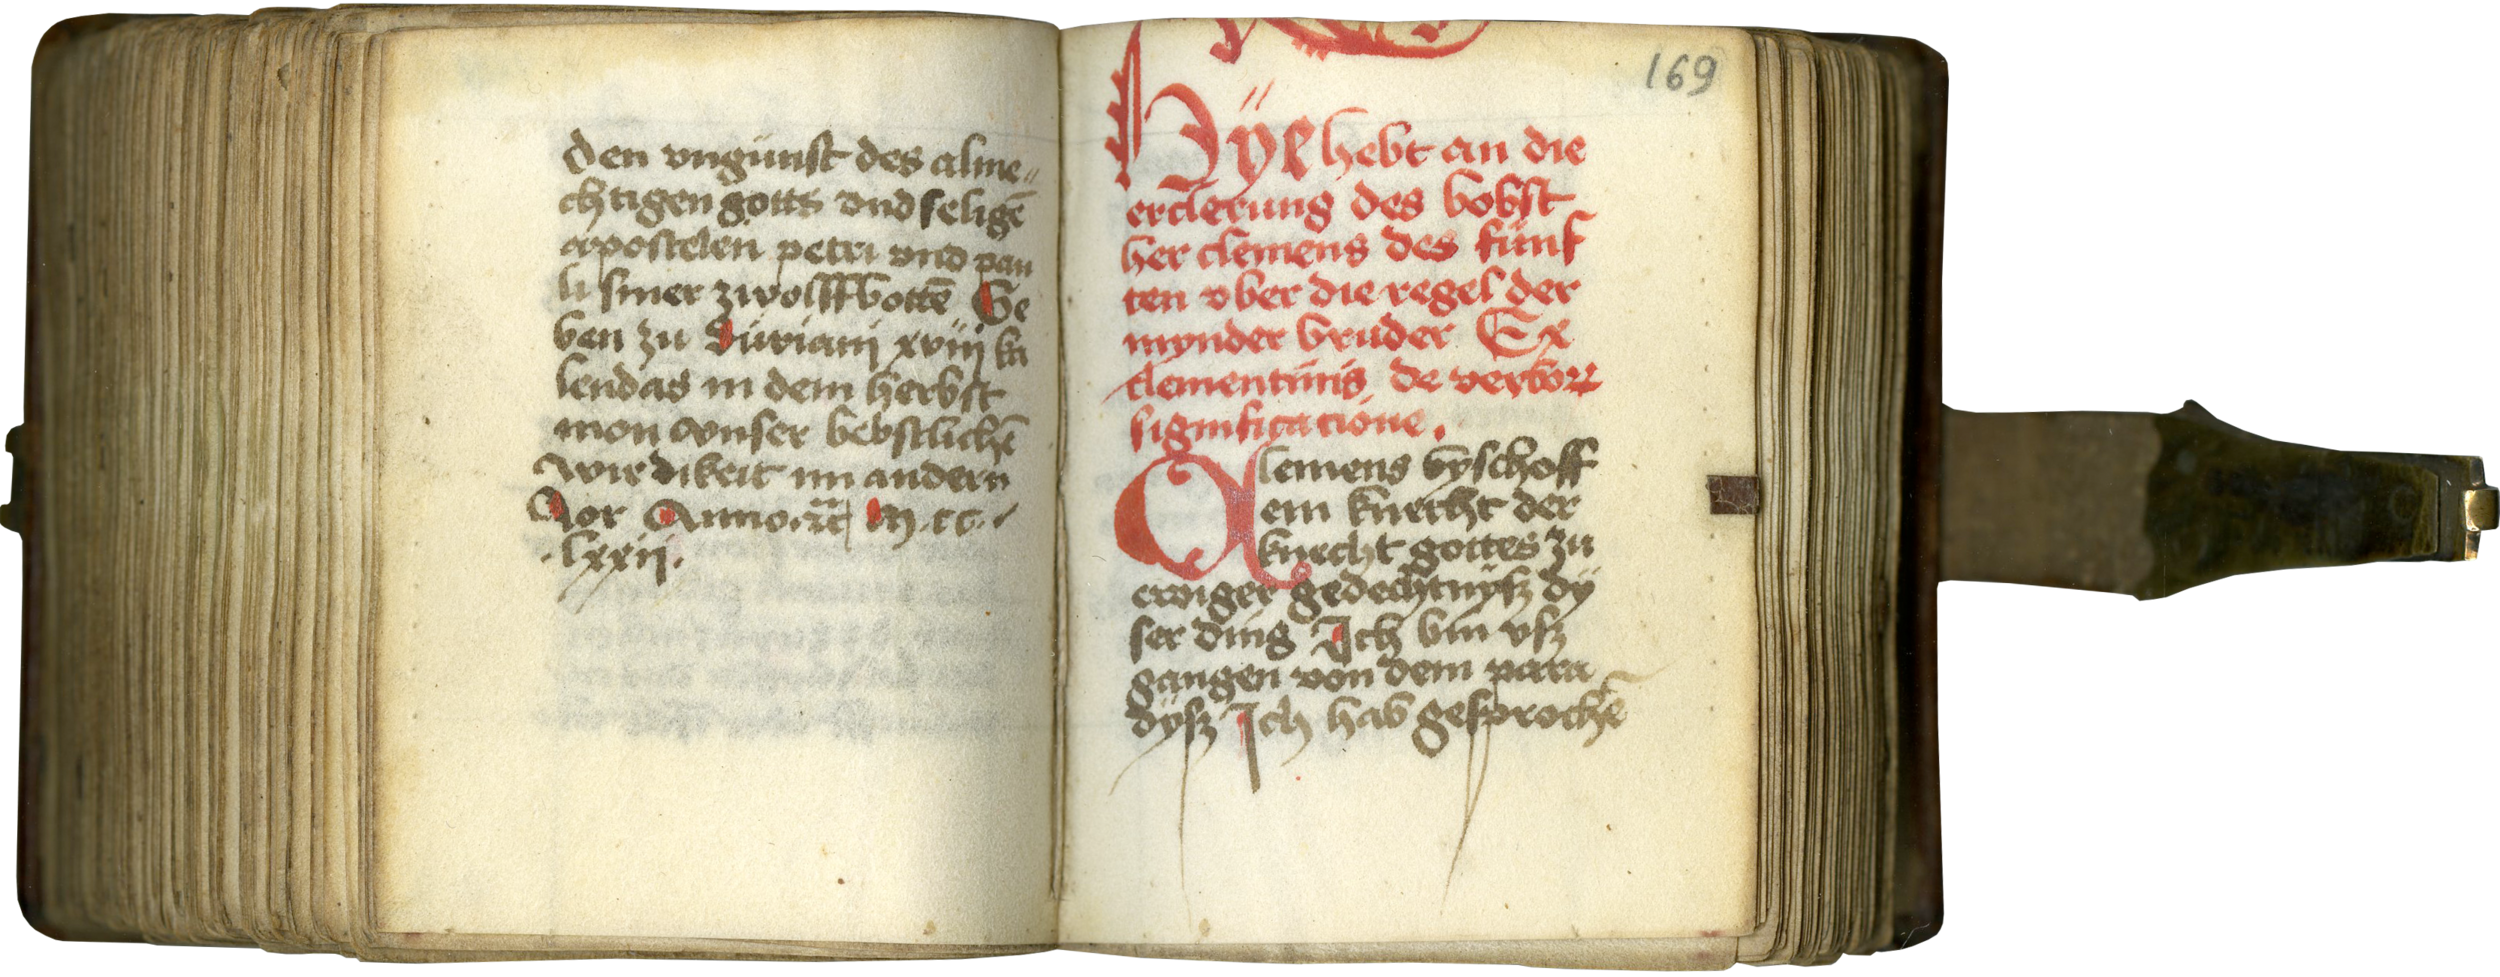 den vngünst des alme„
chtigen gotts vnd seligē
apostelen petri vnd pau
li siner zwolffbottē Ge
ben zu Suriani xviij ka
lendas in dem herbst
mon vnser bebstlichē
wirdikeit im andern
Jor Anno M.cc.
.lxxij.
169
Hÿe hebt an die
erclerung des bobst
her clemens des fünf
ten vber die regel der
mynder bruder Ex
clementinis de verboꝝ
significacione.
Clemens byschoff
ein knecht der
knecht gottes zu
ewiger gedechtnÿsz dÿ
ser ding Ich bin vsz
gangen von dem para
dÿsz Ich hab gesprochē